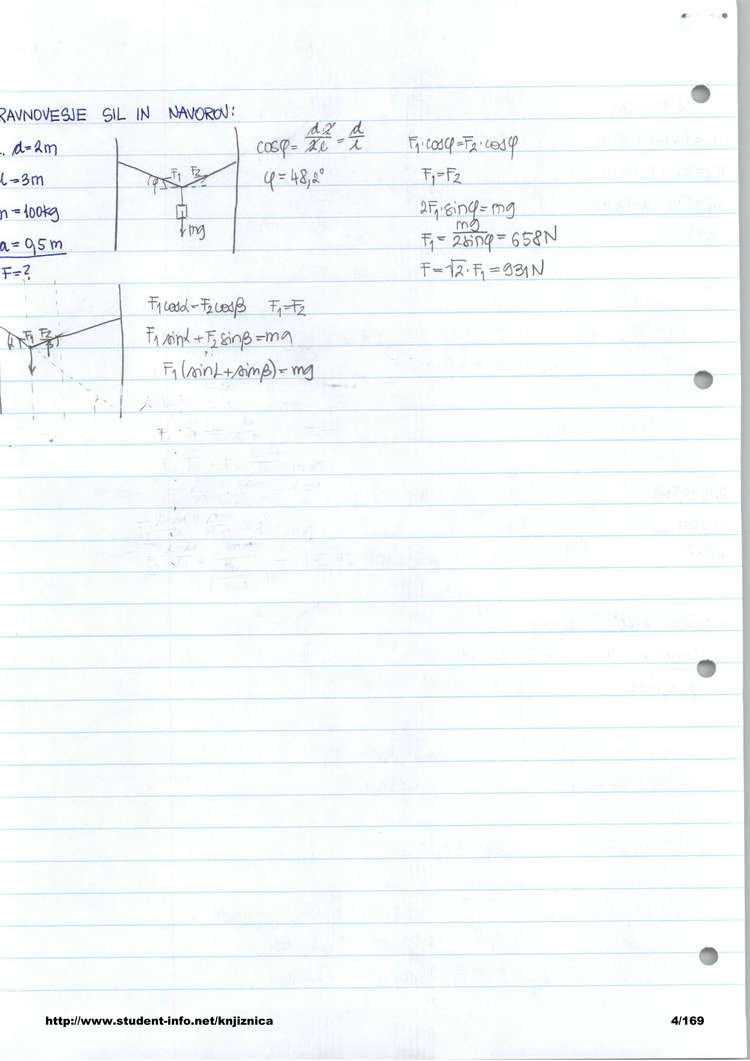 RAVNOVESJE SIL IN NAVOROV:
. d=2m
l=3m
m=100kg
a=0,5m
F=?
φ F₁ F₂
mg
cosφ = (d·2)/(2l) = d/l
φ=48,2°
F₁·cosφ=F₂·cosφ
F₁=F₂
2F₁·sinφ=mg
F₁ = mg/(2sinφ) = 658N
F=√2·F₁=931N
α F₁ F₂ β
F₁cosα=F₂cosβ F₁=F₂
F₁sinα+F₂sinβ=mg
F₁(sinα+sinβ)=mg
http://www.student-info.net/knjiznica
4/169